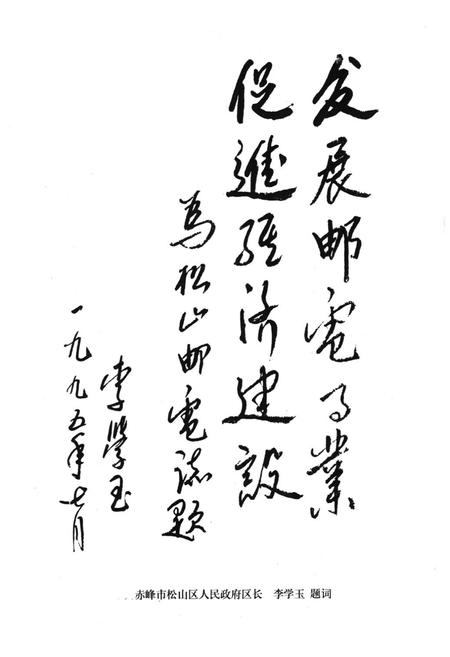 发展邮電事業
促進经济建設
為松山邮電志題
李學玉
一九九五年七月
赤峰市松山区人民政府区长 李学玉 题词